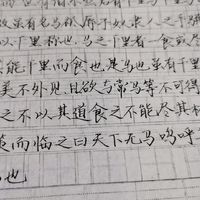 故虽有名马祇辱于奴隶人之手
以千里称也马之千里者一食或尽
其能千里而食也是马也虽有千里
美不外见且欲与常马等不可得
之不以其道食之不能尽其材
策而临之曰天下无马呜呼
马也